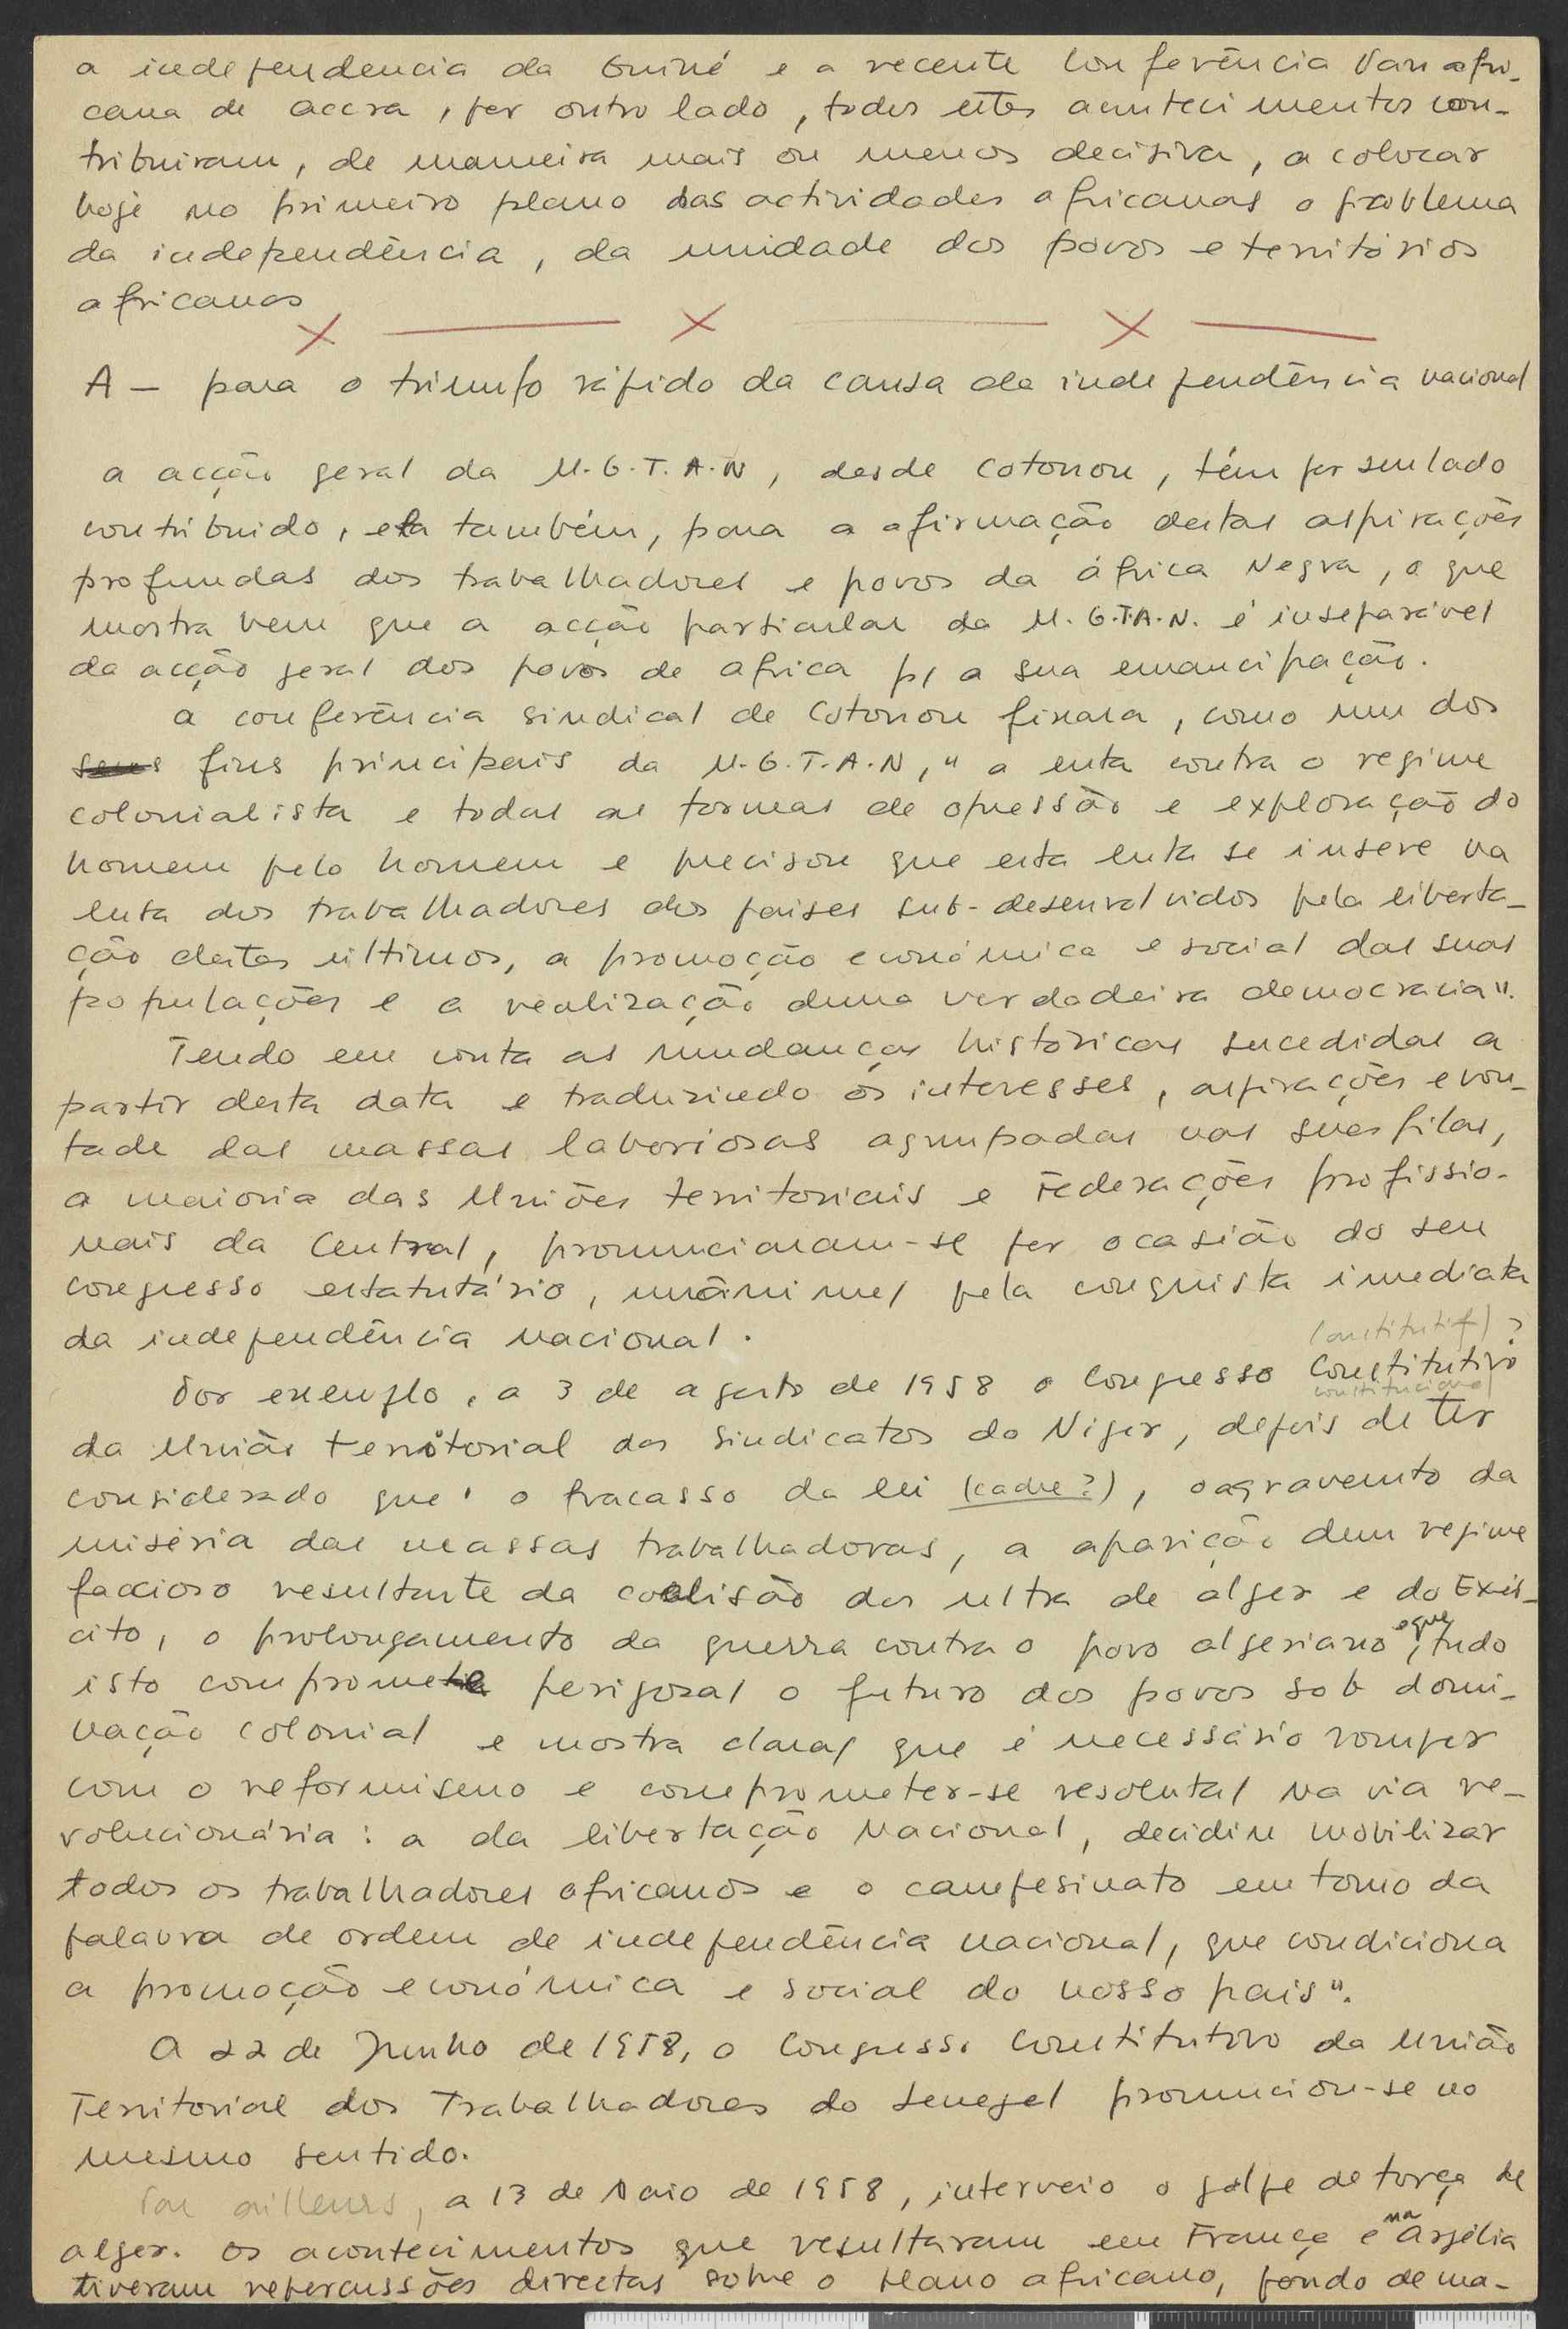 a independencia da Guiné e a recente Conferência Pan afri-
cana de accra, por outro lado, todos estes acontecimentos con-
tribuiram, de maneira mais ou menos decisiva, a colocar
hoje no primeiro plano das actividades africanas o problema
da independência, da unidade dos povos e territórios
africanos
X — X — X —
A — para o triunfo rápido da causa da independência nacional
a acção geral da U.G.T.A.N, desde Cotonou, têm por seu lado
contribuido, ela também, para a afirmação destas aspirações
profundas dos trabalhadores e povos da áfrica Negra, o que
mostra bem que a acção particular da U.G.T.A.N. é inseparável
da acção geral dos povos de africa p/ a sua emancipação.
a conferência sindical de Cotonou fixara, como um dos
seus fins principais da U.G.T.A.N, "a luta contra o regime
colonialista e todas as formas de opressão e exploração do
homem pelo homem e precisou que esta luta se insere na
luta dos trabalhadores dos paises sub-desenvolvidos pela liberta-
ção destes últimos, a promoção económica e social das suas
populações e a realização duma verdadeira democracia".
Tendo em conta as mudanças históricas sucedidas a
partir desta data e traduzindo os interesses, aspirações e von-
tade das massas laboriosas agrupadas nas suas filas,
a maioria das Uniões territoriais e Federações profissio-
nais da Central, pronunciaram-se por ocasião do seu
congresso estatutário, unânime/ pela conquista imediata
da independência nacional.
(constitutif) ?
Por exemplo, a 3 de agosto de 1958 o Congresso Constitutivo
constitucional
da União territorial dos Sindicatos do Niger, depois de ter
considerado que "o fracasso da lei (cadre?), o agravamento da
miséria das massas trabalhadoras, a aparição dum regime
faccioso resultante da coalisão dos ultra de alger e do Exér-
cito, o prolongamento da guerra contra o povo algeriano, e que tudo
isto compromete perigosa/ o futuro dos povos sob domi-
nação colonial e mostra clara/ que é necessário romper
com o reformismo e comprometer-se resoluta/ na via re-
volucionária: a da libertação Nacional, decidiu mobilizar
todos os trabalhadores africanos e o campesinato em torno da
palavra de ordem de independência nacional, que condiciona
a promoção económica e social do nosso pais".
A 22 de Junho de 1958, o Congresso Constitutivo da União
Territorial dos Trabalhadores do Senegal pronunciou-se no
mesmo sentido.
Par ailleurs, a 13 de Maio de 1958, interveio o golpe de força de
alger. Os acontecimentos que resultaram em França e na Argélia
tiveram repercussões directas sobre o plano africano, pondo de ma-